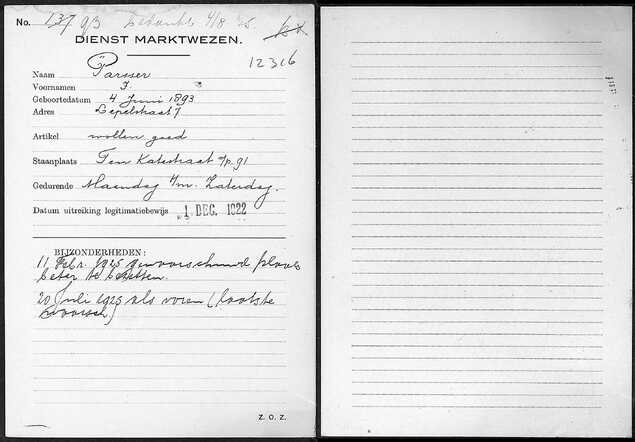 No. 137 9/3 bedankt 4/8 25
DIENST MARKTWEZEN.
12316
Naam Parser
Voornamen I.
Geboortedatum 4 Juni 1893
Adres Lepelstraat 7
Artikel wollen goed
Staanplaats Ten Katestraat o/p. 91
Gedurende Maandag t/m. Zaterdag.
Datum uitreiking legitimatiebewijs 1 DEC. 1922
BIJZONDERHEDEN:
11 Febr. 1925 gewaarschuwd plaats
beter te bezetten.
20 Juli 1925 als voren (laatste
waarsch)
Z. O. Z.